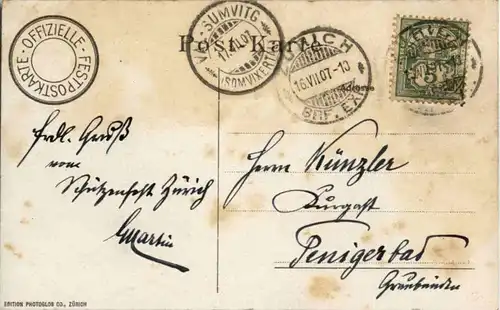 OFFIZIELLE - FESTPOSTKARTE -
SUMVITG
17.VII.07
(SOMVIXERTH)
Post-Karte
ZÜRICH
16.VII.07-10
BRF. EXP.
Adresse
frdl. Gruß
vom
Schützenfest Zürich
Martin
Herrn Künzler
Kurgast
Tenigerbad
Graubünden
EDITION PHOTOGLOB CO., ZÜRICH